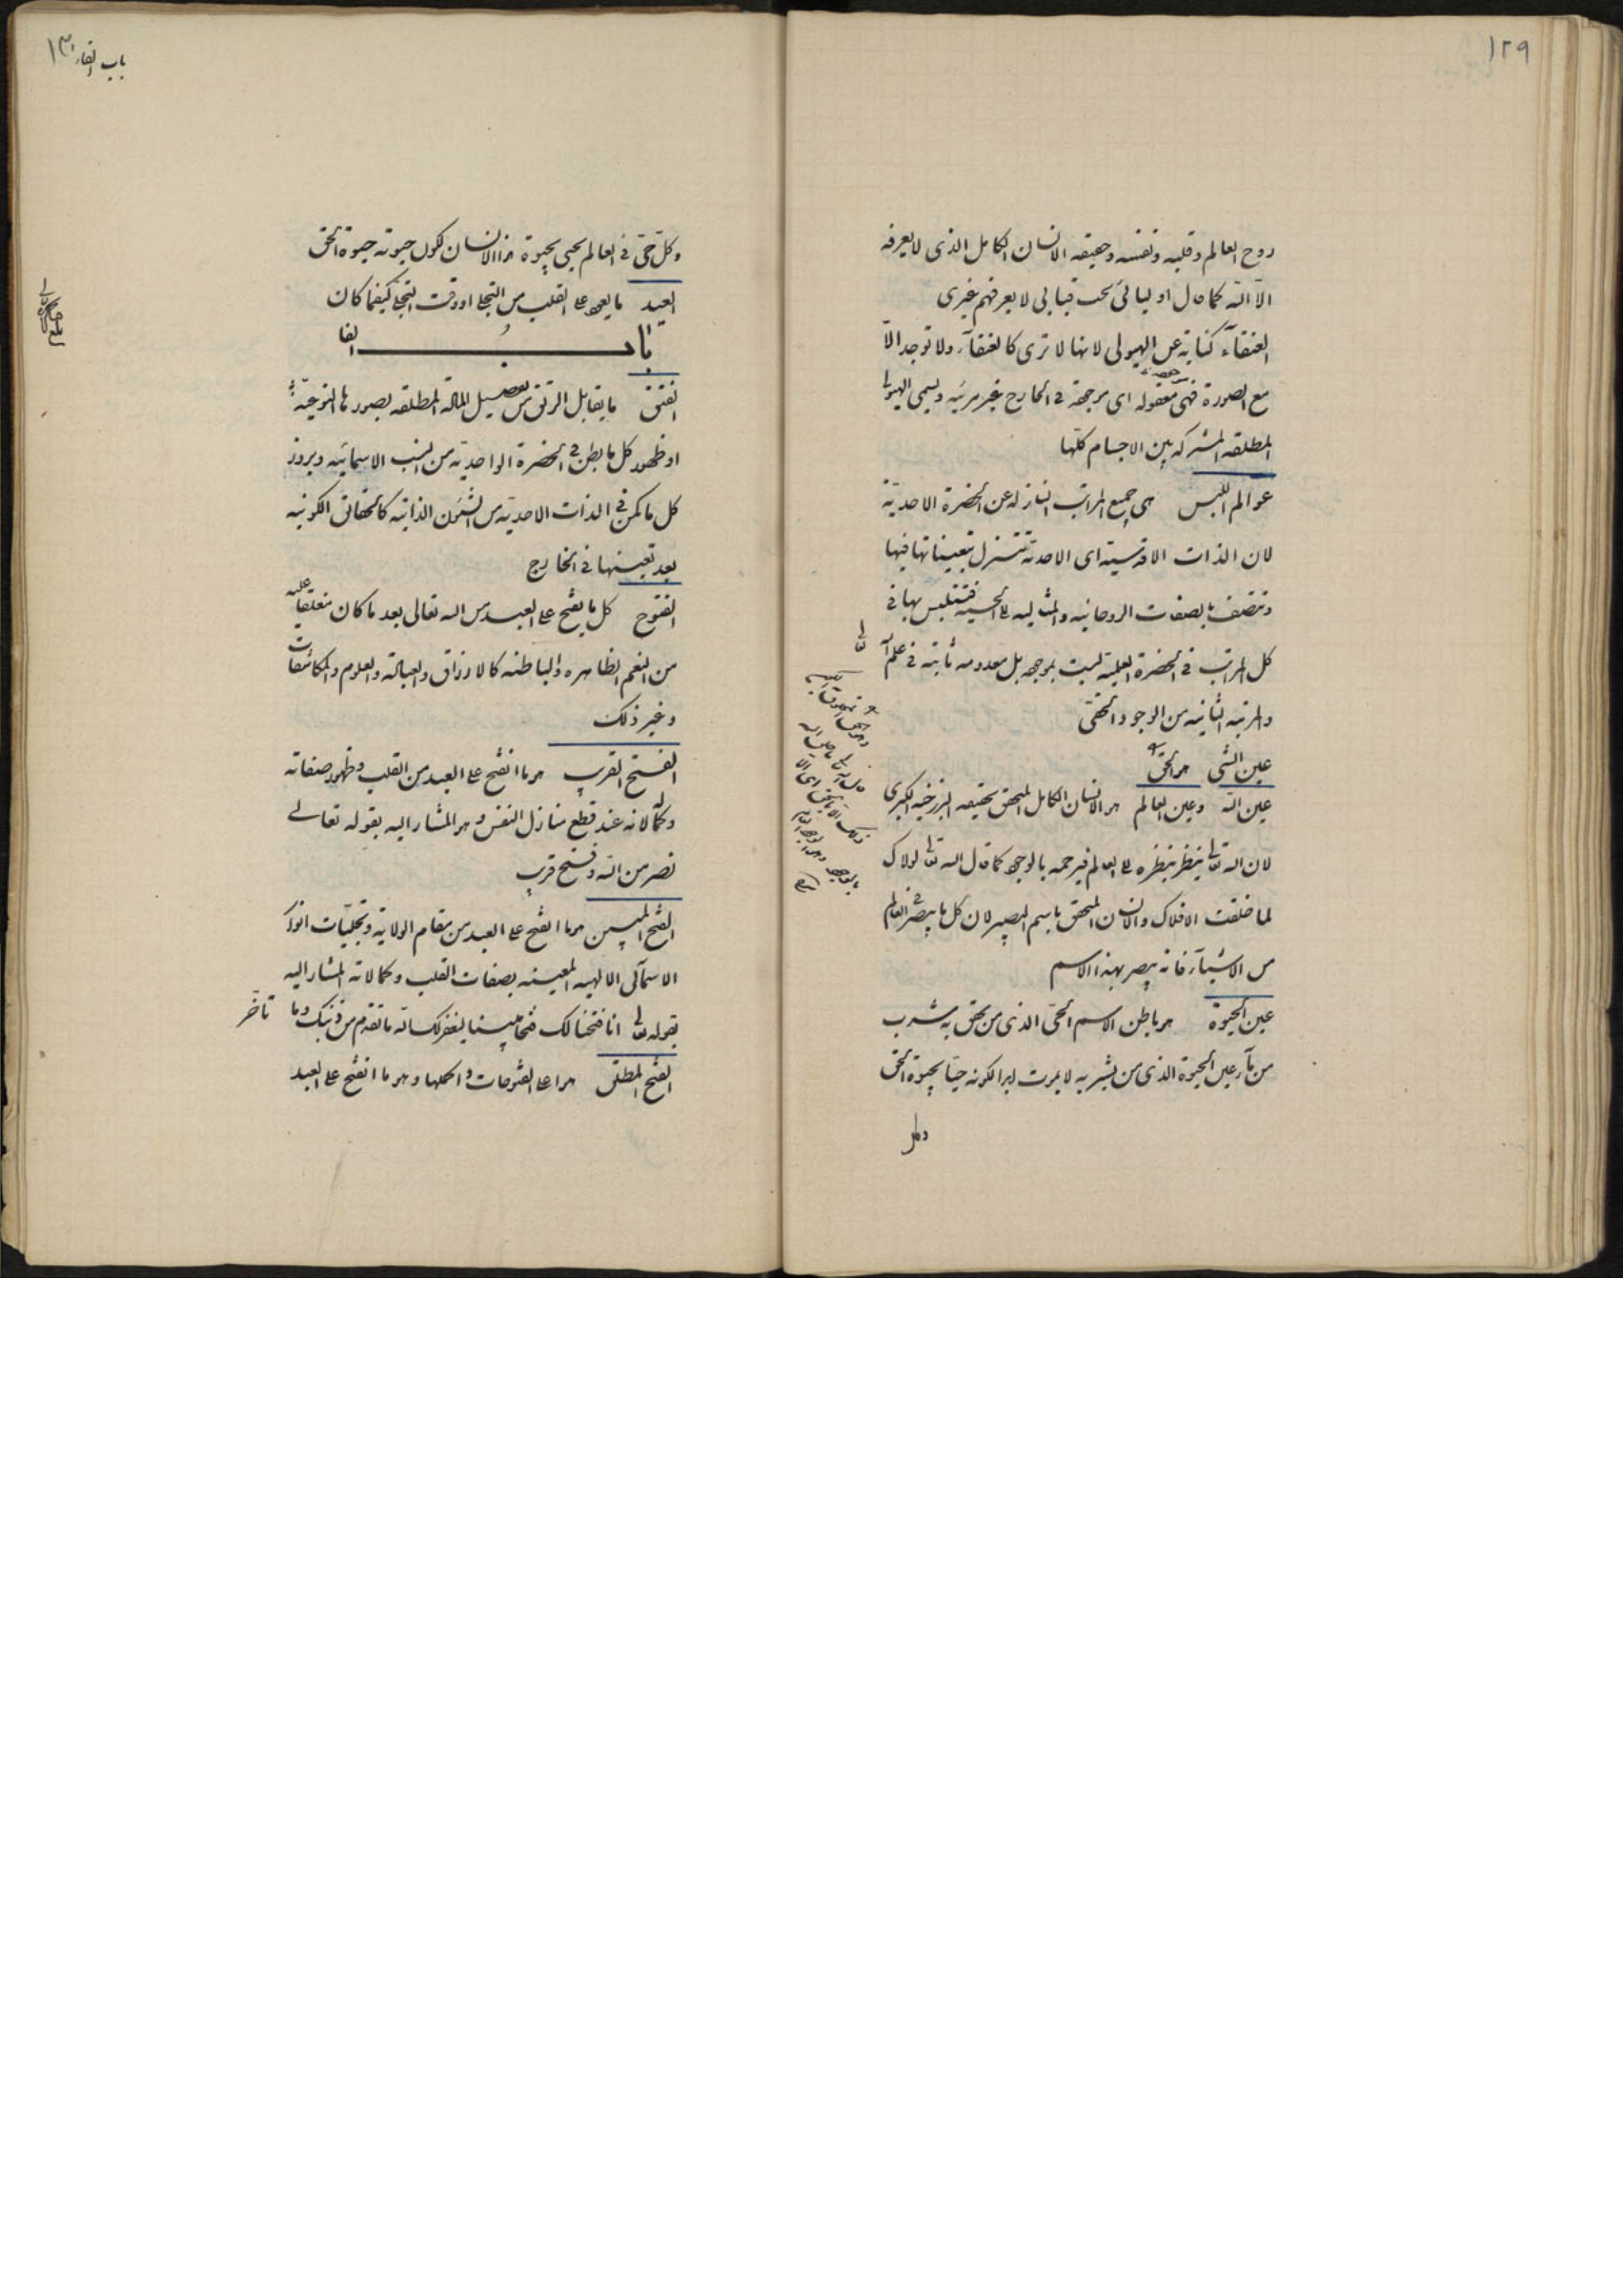 ١٢٩
روح العالم وقلبه ونفسه وحقيقه الانسان الكامل الذى لا يعرفه
الّا الله كما قال اوليائى تحت قبابى لا يعرفهم غيرى
العنقآء كناية عن الهيولى لانها لا ترى كالعنقآء ولا توجد الّا
مع الصورة فهى معقوله اى موجوده فى الخارج غير مرئيه ويسمى الهيولى
المطلقه المشتركه بين الاجسام كلّها
عوالم اللبس هى جميع المراتب النازله عن الحضرة الاحدية
لان الذات الاقدسية اى الاحدية تتنزل بتعيناتها فيها
وتتصف بالصفات الروحانيه والمثاليه الحسيه فتتلبس بها فى
كل المراتب فى الحضرة العلمية ليست بموجوده بل معدومه ثابته فى علم الله
تعالى
والمرتبه الثانيه من الوجود الحقى
عين الشى هو الحق
عين الله وعين العالم هو الانسان الكامل المتحقق بحقيقه البرزخيه الكبرى
لان الله تعالى ينظر بنظره الى العالم فيرحمه بالوجود كما قال الله تعالى لولاك
لما خلقت الافلاك والانسان المتحقق باسم البصير لان كل ما يبصر فى العالم
من الاشيآء فانه يبصر بهذا الاسم
عين الحيوة هو باطن الاسم الحى الذى من تحقق به شرب
من مآء عين الحيوة الذى من شربه لا يموت ابدا لكونه حيّا بحيوة الحق
وكل
باب الفاء ١٣٠
وكلّ حىّ فى العالم يحيى بحيوة هذا الانسان لكون حيوته حيوة الحق
العيد ما يعود على القلب من التجلى او وقت التجلى كيفما كان
باب الفا
الفتق ما يقابل الرتق من تفصيل المادة المطلقه بصورها النوعيّة
او ظهور كل ما بطن فى الحضرة الواحدية من النسب الاسمائيه وبروز
كل ما كمن فى الذات الاحدية من الشئون الذاتية كالحقائق الكونيه
بعد تعينها فى الخارج
الفتوح كل ما يفتح على العبد من الله تعالى بعد ما كان مغلقا عليه
من النعم الظاهره والباطنه كالارزاق والعبادة والعلوم والمكاشفات
وغير ذلك
الفتح القريب هو ما انفتح على العبد من القلب وظهور صفاته
وكمالاته عند قطع منازل النفس وهو المشار اليه بقوله تعالى
نصر من الله وفتح قريب
الفتح المبين هو ما انفتح على العبد من مقام الولاية وتجليّات انوار
الاسمآئى الالهيه المعينه بصفات القلب وكمالاته المشار اليه
بقوله تعالى انا فتحنا لك فتحا مبينا ليغفر لك الله ما تقدم من ذنبك وما تأخّر
الفتح المطلق هو اعلى الفتوحات واكملها وهو ما انفتح على العبد